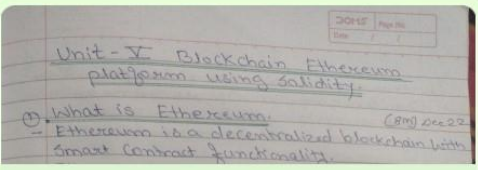 DOMS Page No.
Date / /
Unit - V Blockchain Ethereum
platform using Solidity.
① What is Ethereum. (8m) Dec 22
- Ethereum is a decentralized blockchain with
Smart Contract functionality.